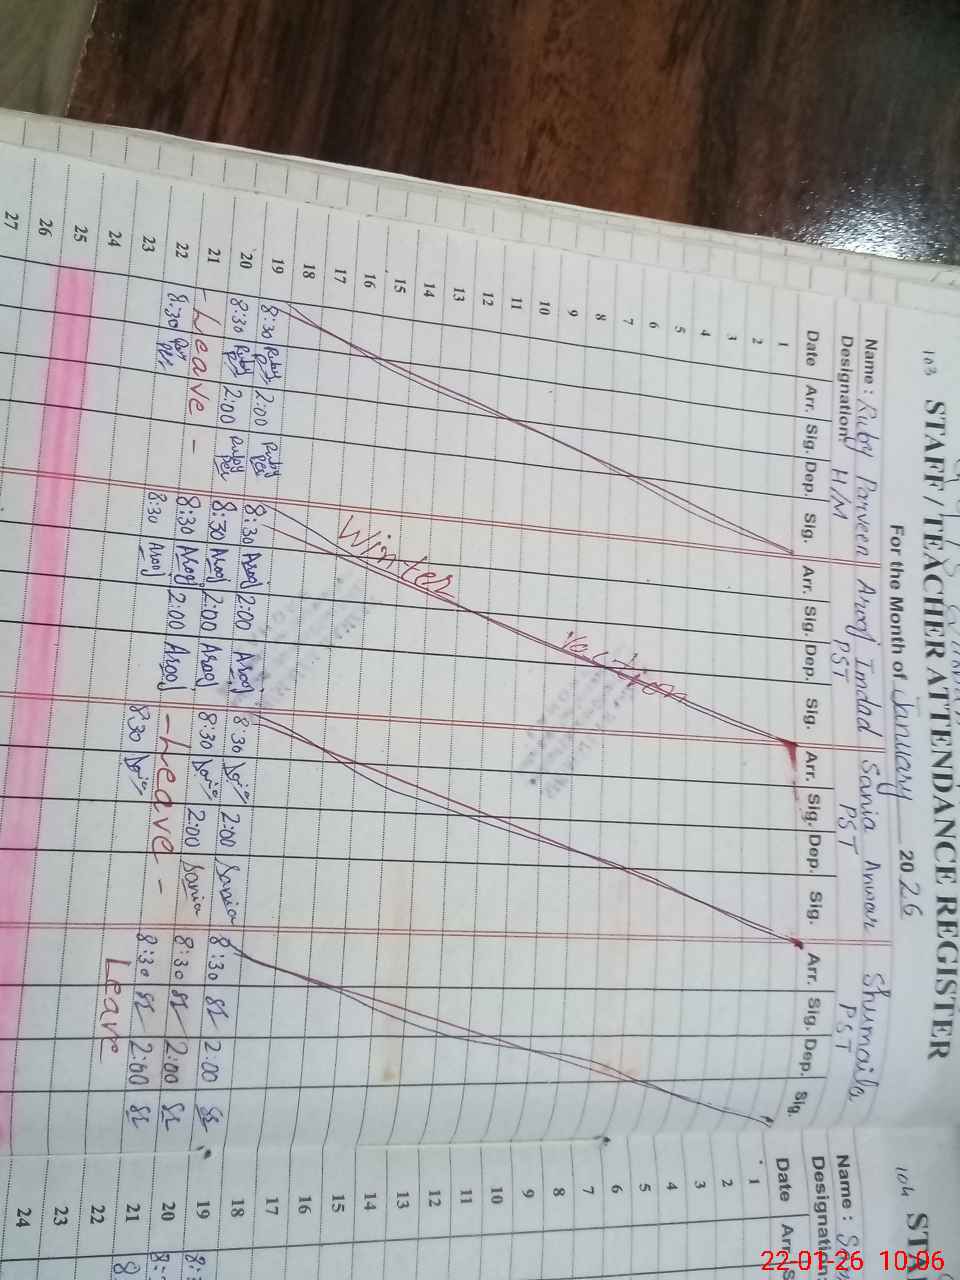 103 STAFF / TEACHER ATTENDANCE REGISTER
For the Month of January 2026
Name : Ruby Parveen Arooj Imdad Sania Anwar Shumaila
Designation: H/M PST PST PST
Date Arr. Sig. Dep. Sig. Arr. Sig. Dep. Sig. Arr. Sig. Dep. Sig. Arr. Sig. Dep. Sig.
1
2
3
4
5
6
7
8
9
10
11
12
13
14
15
16
17
18
Winter Vacation
19 8:30 Ruby 2:00 Ruby 8:30 Arooj 2:00 Arooj 8:30 Sania 2:00 Sania 8:30 2:00
20 8:30 Ruby 2:00 Ruby 8:30 Arooj 2:00 Arooj 8:30 Sania 2:00 Sania 8:30 2:00
21 - Leave - 8:30 Arooj 2:00 Arooj - Leave - 8:30 2:00
22 8:30 8:30 Arooj 8:30 Sania Leave
23
24
25
26
27
104 STA
Name :
Designation
Date Arr. S
1
2
3
4
5
6
7
8
9
10
11
12
13
14
15
16
17
18
19 8:
20 8:
21 8
22
23
24
22-01-26 10:06